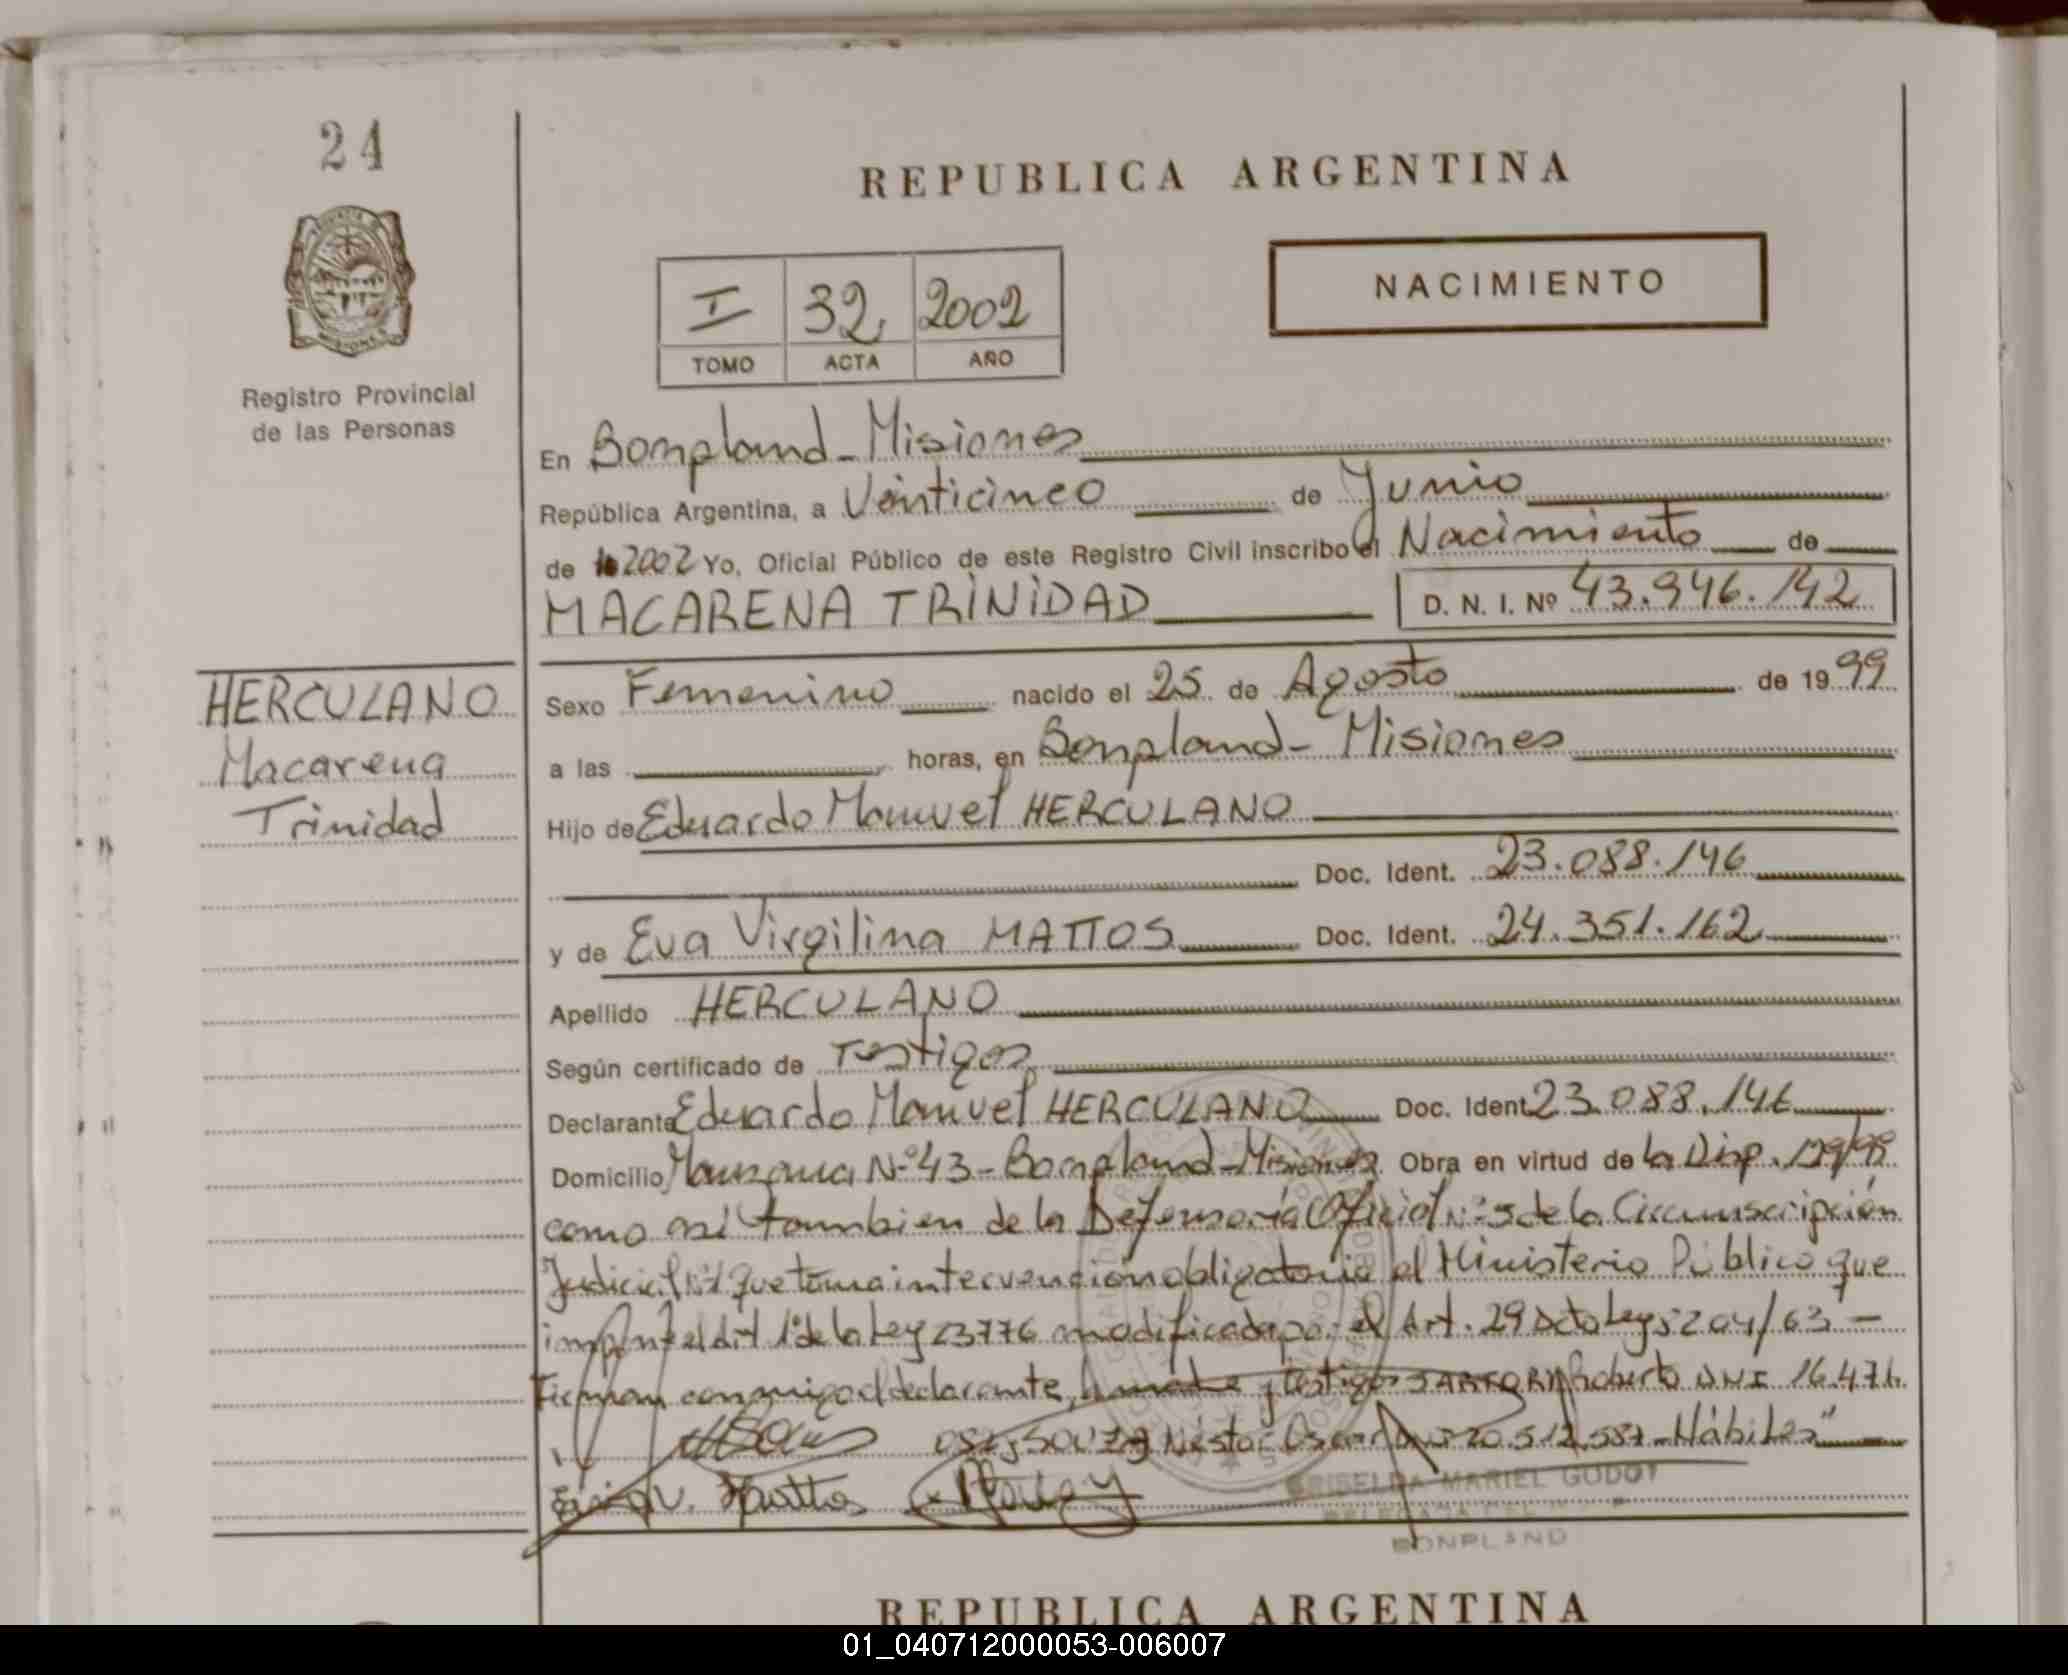 24
REPUBLICA ARGENTINA
NACIMIENTO
I 32 2002
TOMO ACTA AÑO
Registro Provincial
de las Personas
En Bonpland - Misiones
República Argentina, a Veinticinco de Junio
de 2002 Yo, Oficial Público de este Registro Civil inscribo el Nacimiento de
MACARENA TRINIDAD D. N. I. Nº 43.946.142
HERCULANO
Macarena
Trinidad
Sexo Femenino nacido el 25 de Agosto de 1999
a las horas, en Bonpland - Misiones
Hijo de Eduardo Manuel HERCULANO
Doc. Ident. 23.088.146
y de Eva Virgilina MATTOS Doc. Ident. 24.351.162
Apellido HERCULANO
Según certificado de Testigos
Declarante Eduardo Manuel HERCULANO Doc. Ident 23.088.146
Domicilio Manzana Nº 43 - Bonpland - Misiones Obra en virtud de la Disp.
como asi tambien de la Defensoria Oficial Nº 5 de la Circunscripción
Judicial que toma intervencion obligatoria el Ministerio Público que
el Art 1º de la Ley 23776 modificada por el Art. 29 Dcto Ley 8204/63 -
Firman conmigo el declarante, la madre y testigos SARTORI Roberto DNI 16.471.
Néstor Oscar 20.512.587 - Hábiles"
GRISELDA MARIEL GODOY
BONPLAND
REPUBLICA ARGENTINA
01_040712000053-006007